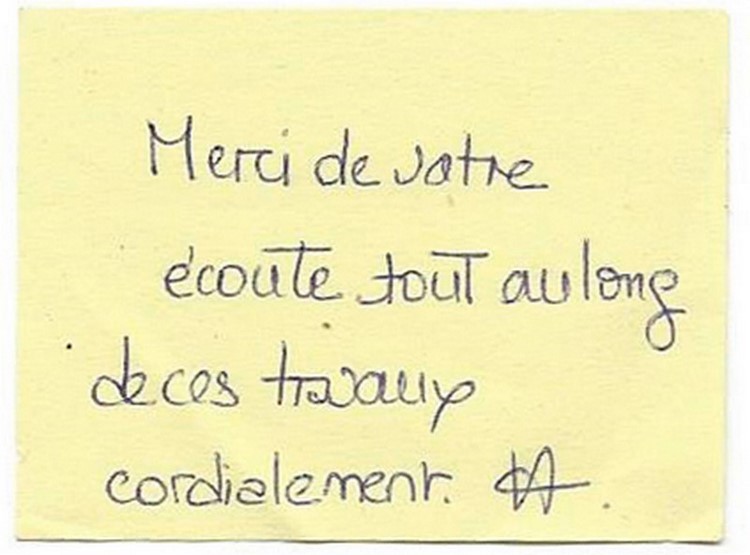 Merci de votre
écoute tout au long
de ces travaux
cordialement.